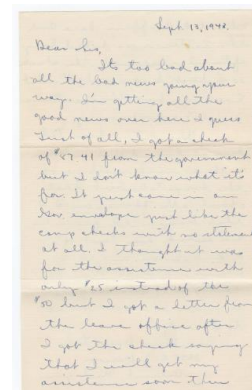 Sept. 13, 1945.
Dear Sis,
It's too bad about
all the bad news going your
way. I'm getting all the
good news over here I guess
First of all, I got a check
of $57.41 from the government
but I don't know what it's
for. It just came in an
Gov envelope just like the
camp checks with no statement
at all. I thought it was
for the assistance with
only $25 instead of the
$50 but I got a letter from
the leave office after
I got the check saying
that I will get my
assistance soon thru